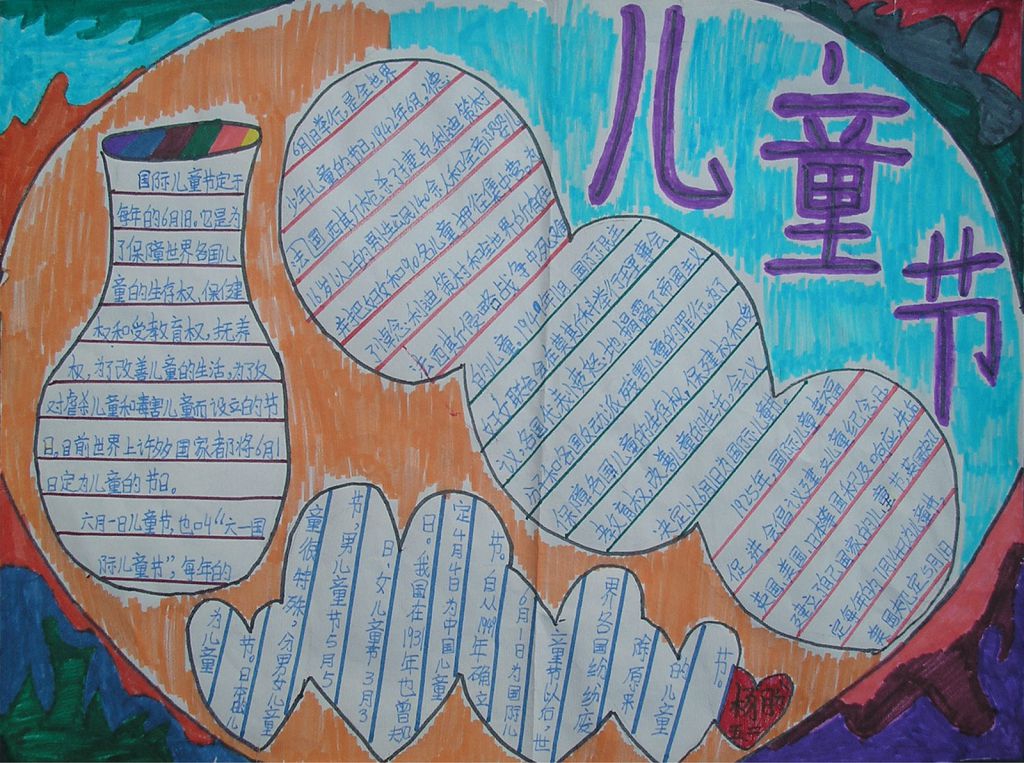 儿童节
国际儿童节定于
每年的6月1日。它是为
了保障世界各国儿
童的生存权、保健
权和受教育权,抚养
权,为了改善儿童的生活,为了反
对虐杀儿童和毒害儿童而设立的节
日。目前世界上许多国家都将6月1
日定为儿童的节日。
六月一日儿童节,也叫“六一国
际儿童节”,每年的
6月1日举行,是全世界
少年儿童的节日,1942年6月,德
法西斯枪杀了捷克利迪策村
16岁以上的男性公民140余人和全部婴儿
并把妇女和90名儿童押往集中营。为
了悼念利迪策村和全世界
法西斯侵略战争中死
的儿童。
国际民主
妇女联合会在莫斯科举行理事会
议,各国代表愤怒地揭露了帝国主义
分子和各国反动派残害儿童的罪行。为了
保障各国儿童的生存权、保健权和受
教育权,改善儿童的生活,会议
决定以6月1日为国际儿童节。
1925年,国际儿童幸福
促进会倡议建立儿童纪念日
英国、美国、日本等国积极响应,先后
建立了自己国家的儿童节。英国规
定每年的7月14为儿童节,
美国规定5月1日
为儿童
节。日本的儿
童很特殊,分男女儿童
节,男儿童节5月5
日、女儿童节3月3
日。我国在1931年也曾规
定4月4日为中国儿童
节。自从1949年确立
6月1日为国际儿
童节以后,世
界各国纷纷废
除原来
的儿童
节。